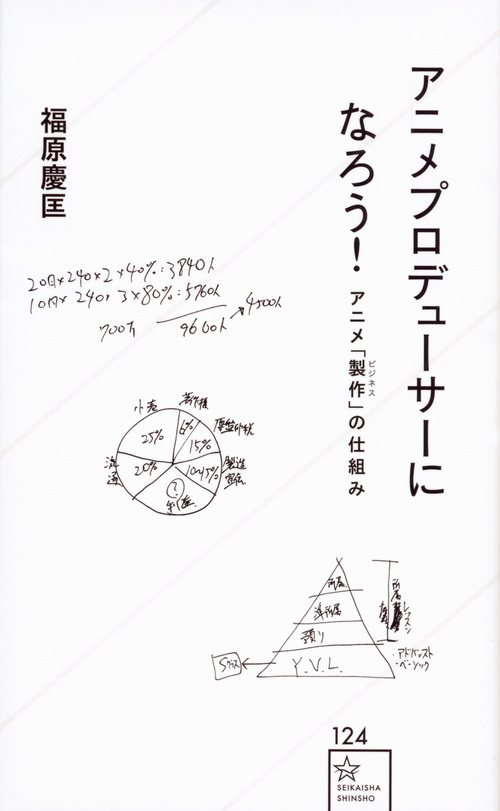 アニメプロデューサーに
なろう!
アニメ「製作」の仕組み
ビジネス
福原慶匡
20日×240×2×40%:3840人
10日×240×3×80%:5760人
9600人
4500人
小売
25%
6%
15%
10~15%
20%
流通
?
所属
準所属
預り
Y.V.L.
Sクラス
レッスン
・アドバンスト
・ベーシック
124
SEIKAISHA
SHINSHO